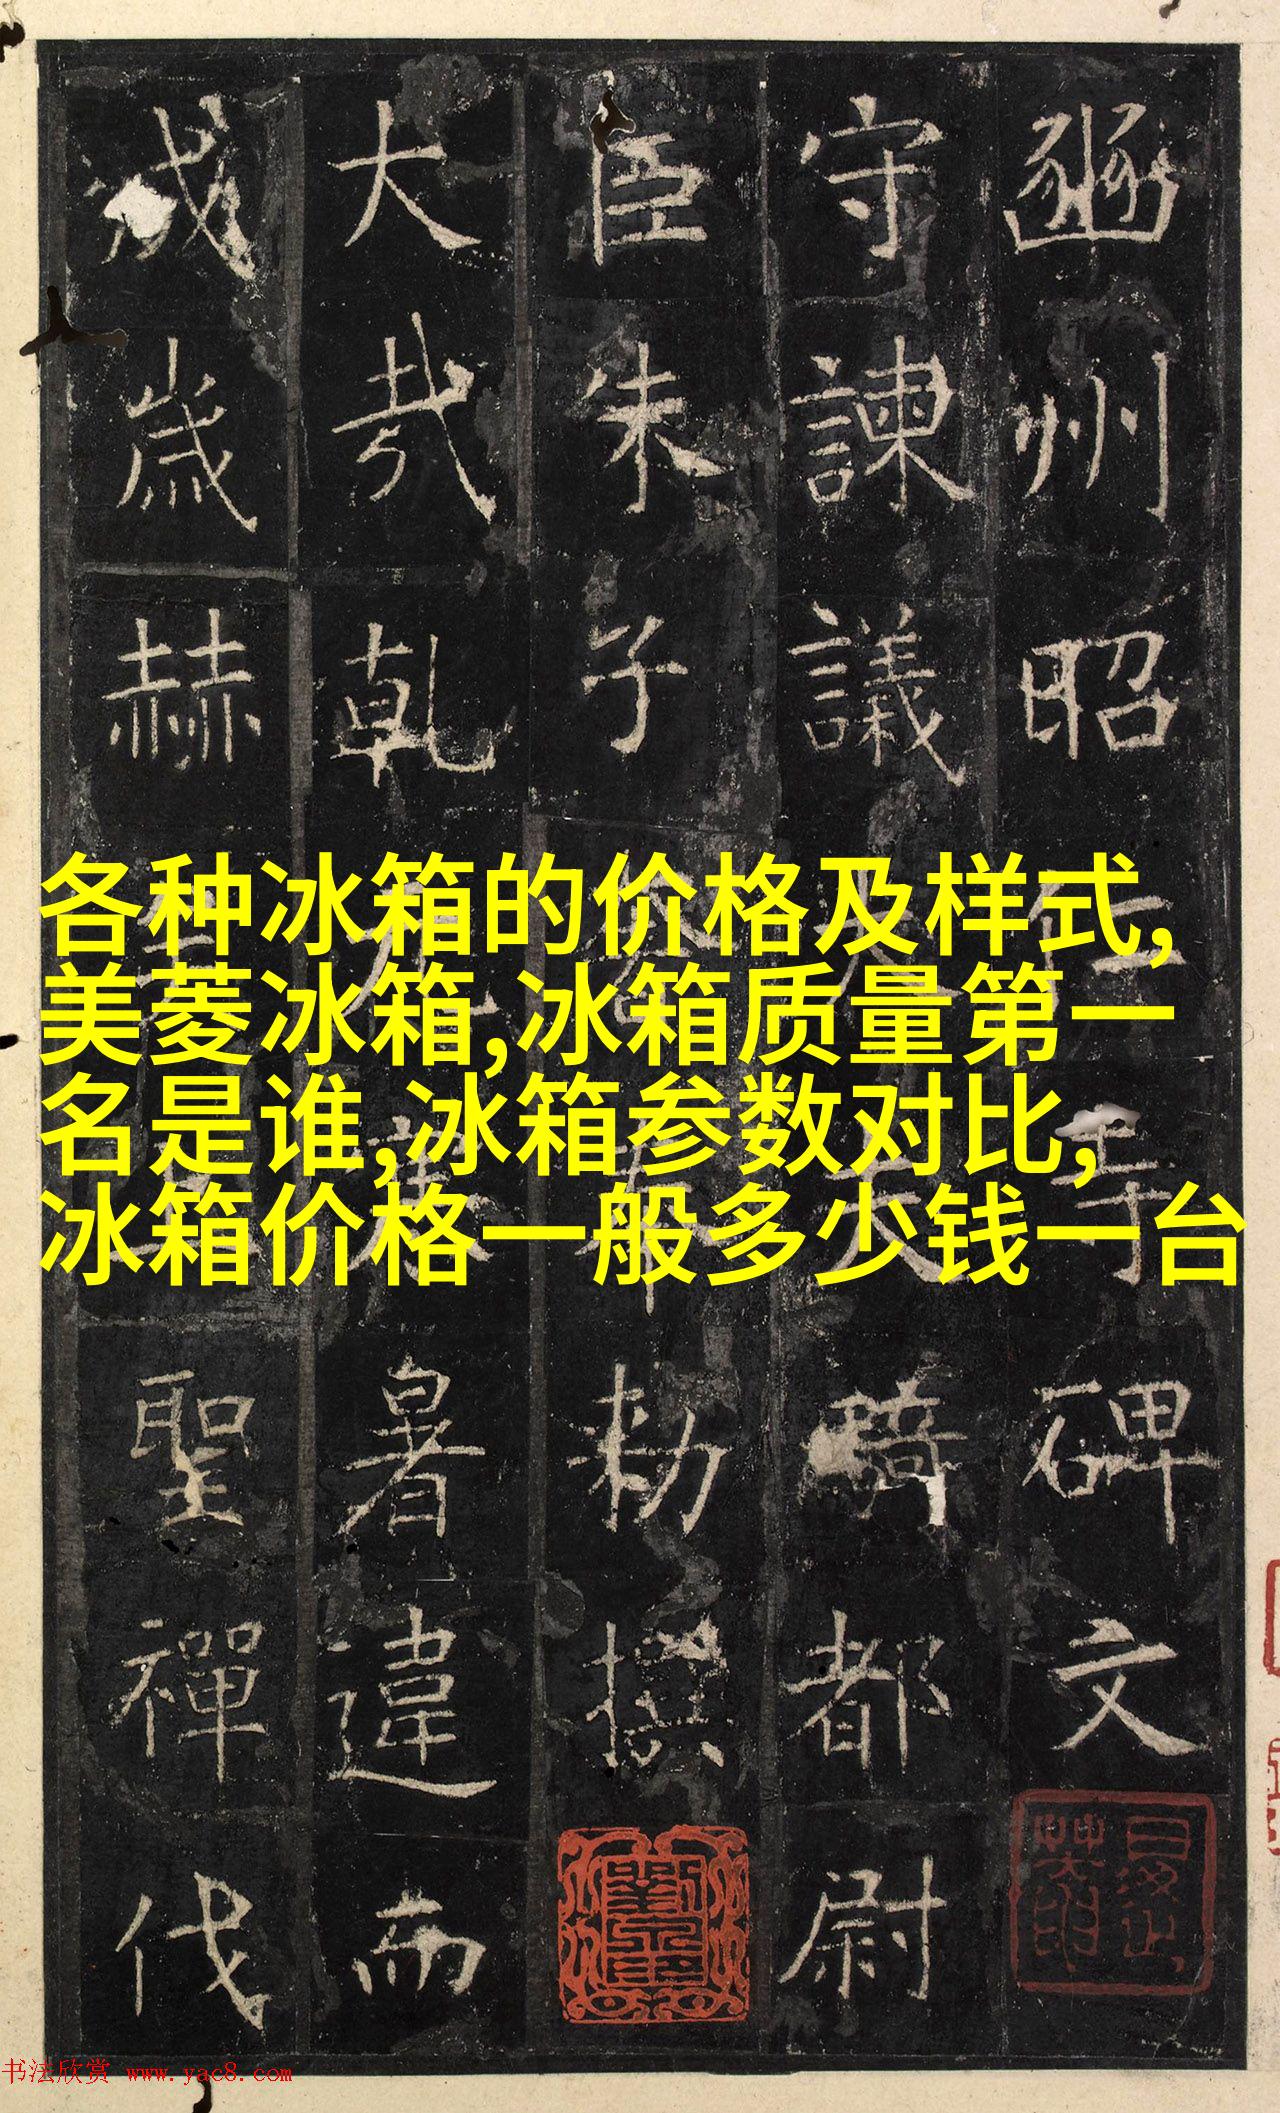 豳州昭仁寺碑文
守諫議大夫騎都尉
臣朱子奢奉勅撰
大哉乾元寒暑違而
成歲赫
聖禪代
各种冰箱的价格及样式,
美菱冰箱,冰箱质量第一
名是谁,冰箱参数对比,
冰箱价格一般多少钱一台
书法欣赏 www.yac8.com